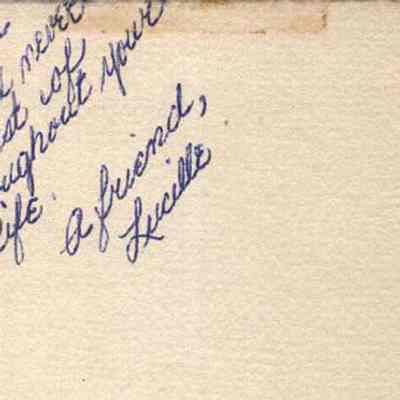 never
st of
oughout your
life.
A friend,
Lucille